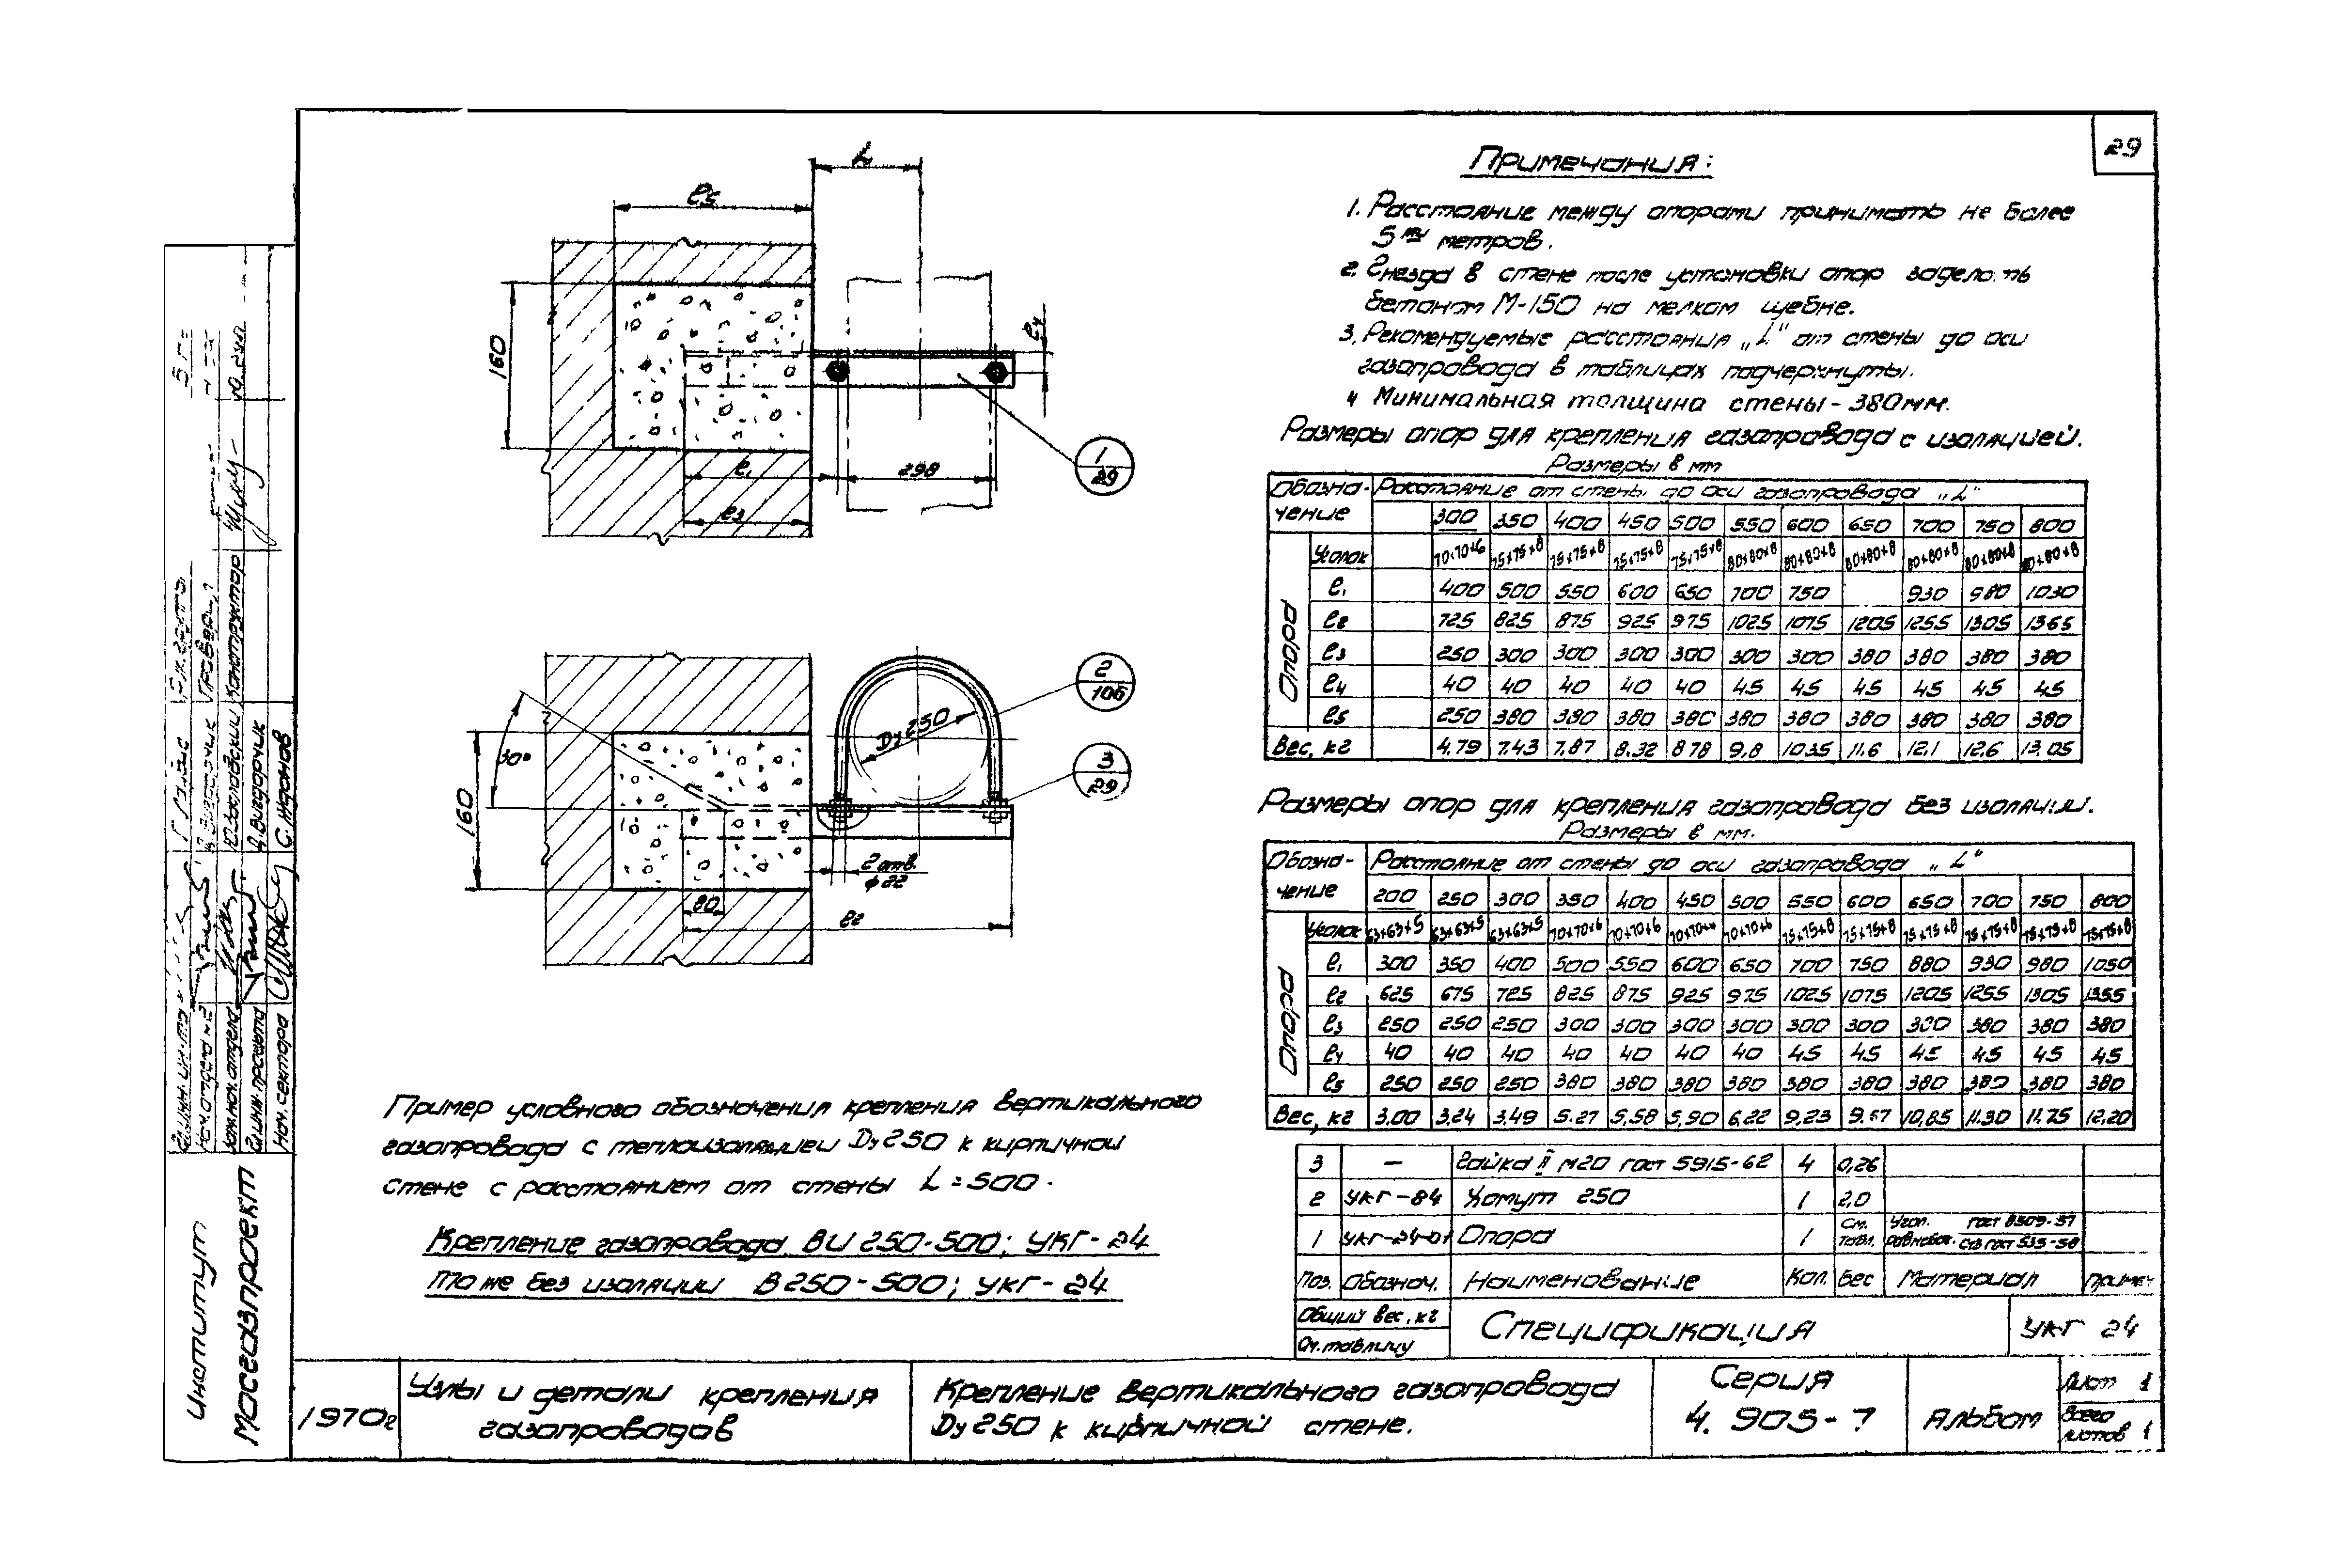 29
L
е5
160
е4
е1
298
е3
1
29
Примечания:
1. Расстояние между опорами принимать не более
5ти метров.
2. Гнезда в стене после установки опор заделать
бетоном М-150 на мелком щебне.
3. Рекомендуемые расстояния „L" от стены до оси
газопровода в таблицах подчеркнуты.
4 Минимальная толщина стены - 380мм.
Размеры опор для крепления газопровода с изоляцией.
Размеры в мм
Обозначение Расстояние от стены до оси газопровода „L"
300 350 400 450 500 550 600 650 700 750 800
Опора
Уголок 70×70×6 75×75×8 75×75×8 75×75×8 75×75×8 80×80×8 80×80×8 80×80×8 80×80×8 80×80×8 80×80×8
е1 400 500 550 600 650 700 750 930 980 1030
е2 725 825 875 925 975 1025 1075 1205 1255 1305 1365
е3 250 300 300 300 300 300 300 380 380 380 380
е4 40 40 40 40 40 45 45 45 45 45 45
е5 250 380 380 380 380 380 380 380 380 380 380
Вес, кг 4.79 7.43 7.87 8.32 8.78 9.8 10.35 11.6 12.1 12.6 13.05
30°
160
Ду 250
2
106
3
29
2 отв.
φ22
80
е2
Размеры опор для крепления газопровода без изоляции.
Размеры в мм.
Обозначение Расстояние от стены до оси газопровода „L"
200 250 300 350 400 450 500 550 600 650 700 750 800
Опора
Уголок 63×63×5 63×63×5 63×63×5 70×70×6 70×70×6 70×70×6 70×70×6 75×75×8 75×75×8 75×75×8 75×75×8 75×75×8 75×75×8
е1 300 350 400 500 550 600 650 700 750 880 930 980 1050
е2 625 675 725 825 875 925 975 1025 1075 1205 1255 1305 1355
е3 250 250 250 300 300 300 300 300 300 380 380 380
е4 40 40 40 40 40 40 40 45 45 45 45 45 45
е5 250 250 250 380 380 380 380 380 380 380 380 380 380
Вес, кг 3.00 3.24 3.49 5.27 5.58 5.90 6.22 9.23 9.57 10,85 11.30 11.75 12,20
Пример условного обозначения крепления вертикального
газопровода с теплоизоляцией Ду 250 к кирпичной
стене с расстоянием от стены L = 500.
Крепление газопровода ВИ 250-500; УКГ-24
То же без изоляции В 250-500; УКГ-24
3 — Гайка II М20 гост 5915-62 4 0,26
2 УКГ-84 Хомут 250 1 2,0
1 УКГ-24-01 Опора 1 См. табл. Угол. равнобок. гост 8509-57 Ст3 гост 535-58
Поз. Обознач. Наименование Кол. Вес Материал Примеч
Общий вес, кг
См. таблицу
Спецификация
УКГ 24
1970г
Узлы и детали крепления
газопроводов
Крепление вертикального газопровода
Ду 250 к кирпичной стене.
Серия
4. 905-7
Альбом
Лист 1
Всего
листов 1
Институт
Мосгазпроект
Нач. отдела №2
Зам. нач. отдела
Гл. инж. проекта
Нач. сектора
С. Жданов
Конструктор